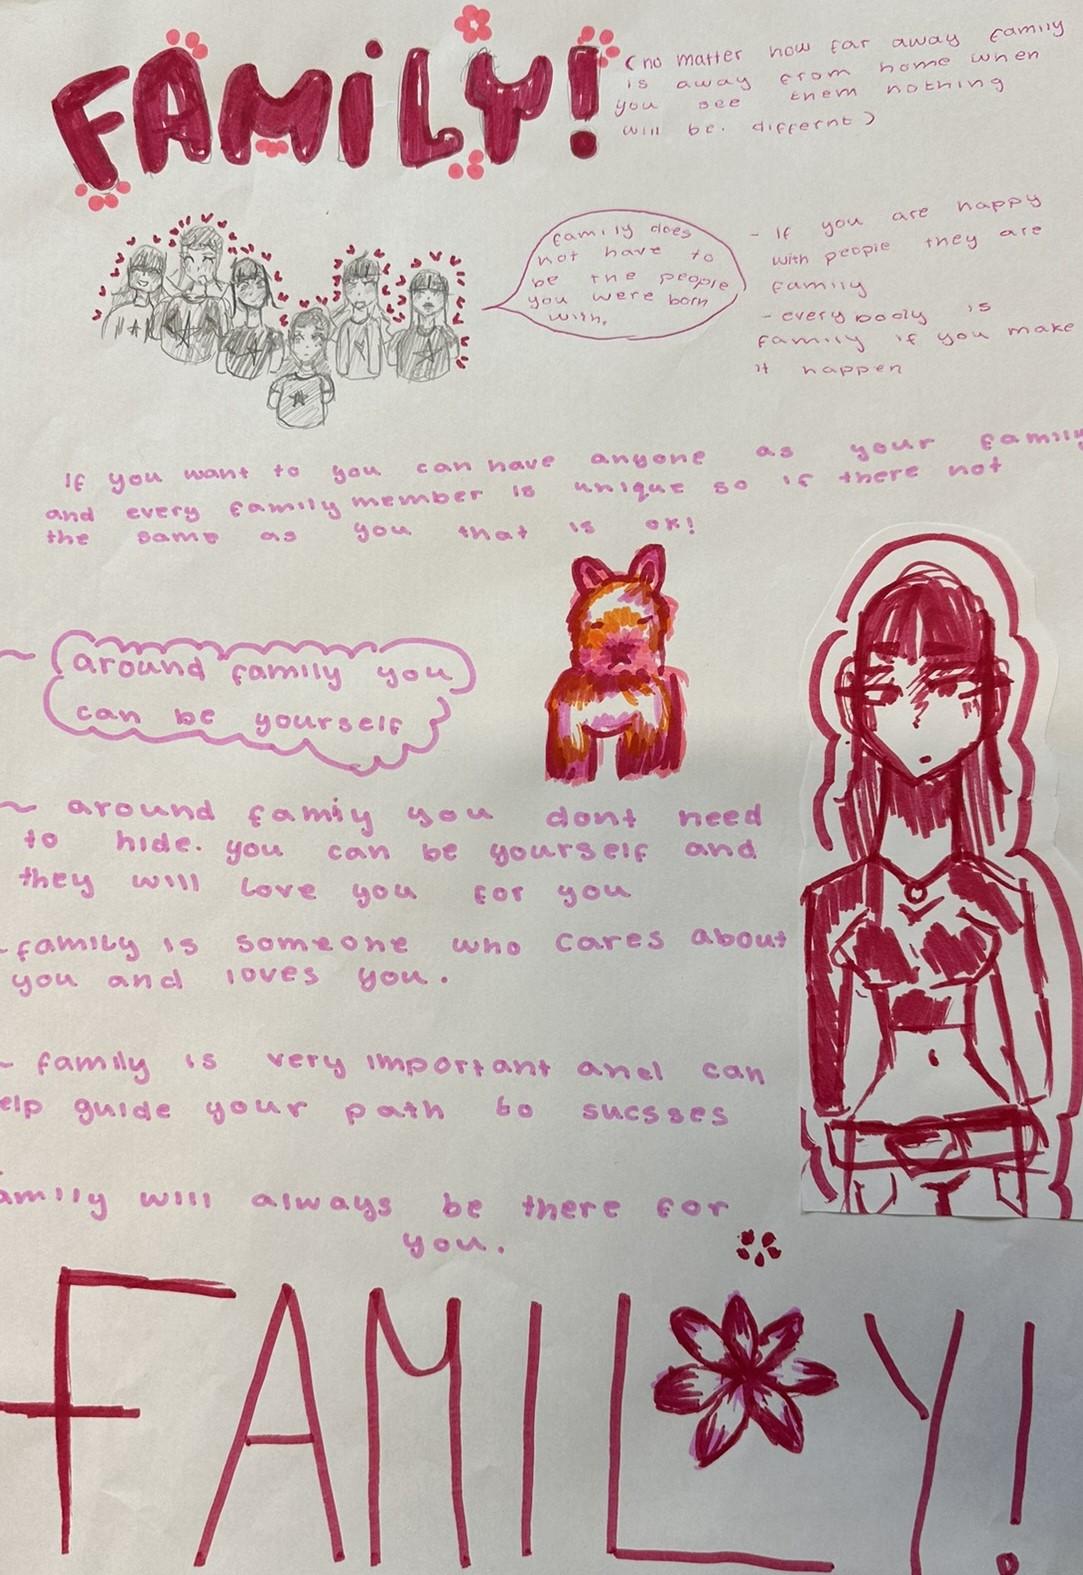 FAMILY!
(no matter how far away family
is away from home when
you see them nothing
will be. differnt)
family does
not have to
be the people
you were born
with.
- If you are happy
with people they are
family
- everybody is
family if you make
it happen
If you want to you can have anyone as your family
and every family member is unique so if there not
the same as you that is ok!
~ around family you
can be yourself
~ around famiy you dont need
to hide. you can be yourself and
they will love you for you
- family is someone who cares about
you and loves you.
~ family is very important and can
elp guide your path to sucsses
amily will always be there for
you.
FAMILY!